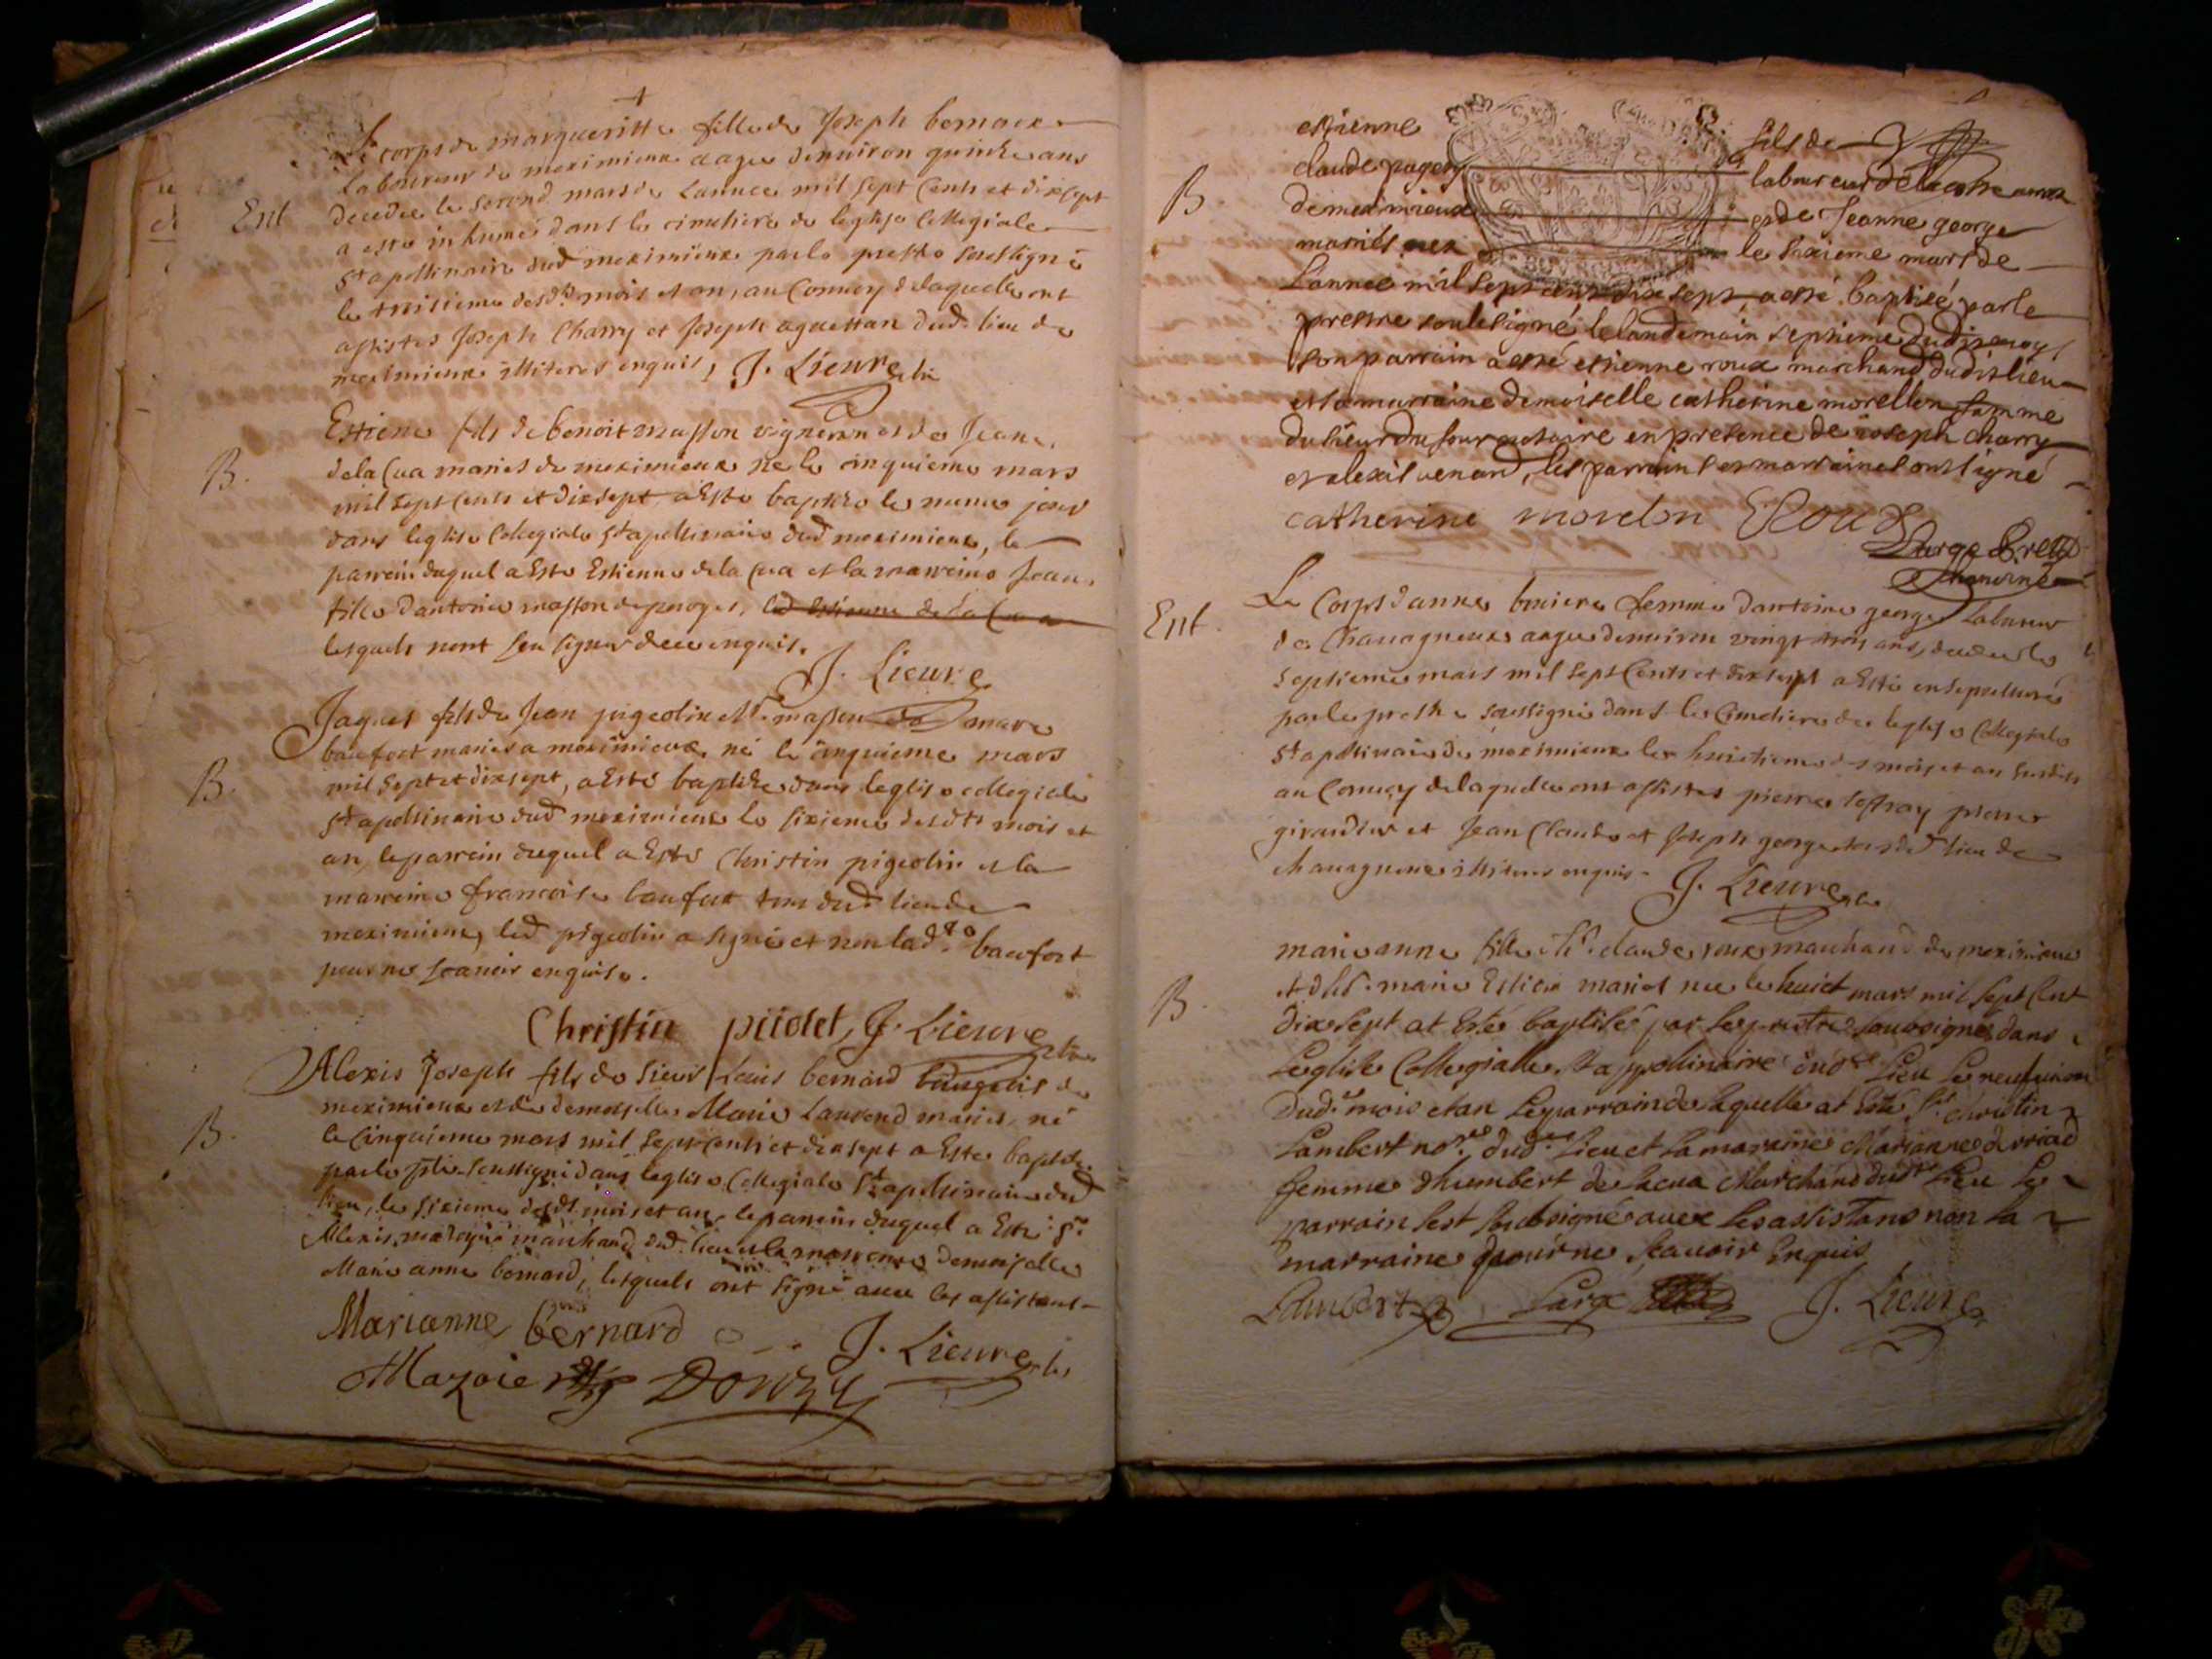 Le corps de margueritte fille de Joseph bernoux
Laboureur de meximieux aagée denviron quinze ans
decedée le second mars de Lannée mil sept Cents et dix sept
Ent
a esté inhumé dans le cimetiere de leglise Collegiale
St apollinaire dud meximieux par le prestre soussigné
le troisieme desdts mois et an, au Convoy de laquelle ont
assistes Joseph Charry et Joseph aguettan dud. lieu de
meximieux illiteres enquis, J. Lieure
Estiene fils de benoit masson vigneron et de Jeane
B.
dela Cua mariés de meximieux né le cinquieme mars
mil sept Cents et dix sept a Esté baptizé le meme jour
dans leglise Collegiale St apollinaire dud meximieux, le
parrein duquel a Esté Estienne dela Cua et la marreine Jeane
fille dantoine masson de peroges, led Estienne dela Cua
lesquels nont sceu signer de ce enquis.
J. Lieure
Jaques fils de Jean pigeolin Mre masson et de marie
baufort mariés a meximieux, né le cinquieme mars
B.
mil sept et dixsept, a Esté baptizé dans leglise collegiale
St apollinaire dud meximieux le sixieme desdts mois et
an, le parrein duquel a Esté Christin pigeolin et la
marreine francoise baufort tous dud lieu de
meximieux, led pigeolin a signé et non lad baufort
pour ne scavoir enquise.
Christin piiolet J. Lieure
Alexis Joseph fils de sieur Louis bernard bourgeois de
meximieux et de demoiselle Marie Laurend mariés, né
B.
le Cinquieme mars mil sept Cents et dix sept a Esté baptizé
par le ptre soussigné dans leglise Collegiale St apollinaire dud
lieu, le sixieme desdt mois et an, le parrein duquel a Esté Sr
Alexis mazoyer marchand dud. lieu et la marreine demoiselle
Marie anne bernard, lesquels ont signé avec les assistans
Marianne bernard J. Lieure
Mazoier Donzy
estienne fils de
claude pagey laboureur de
B
de meximieux et de Jeanne george
mariés le sixieme mars de
Lannee mil sept cent dix sept, a esté baptisé par le
prestre soussigné le landemain septieme dudit moy
son parrain a esté estienne roux marchand dudit lieu
et sa marraine demoiselle catherine morellon famme
du sieur dufour notaire en presence de ioseph charry
et alexis venard, les parrain et marraine ont signé
catherine morelon E Roux
Large
Chanoine
Le Corps danne femme dantoine george laboureur
Ent.
de Chavagneux aagée denviron vingt trois ans, decedée le
septieme mars mil sept Cents et dix sept a Esté ensepulturé
par le prestre soussigné dans le Cimetiere de leglise Collegiale
St apollinaire de meximieux le huictieme des mois et an susdits
au Convoy de laquelle ont assistes pierre pierre
giraudier et Jean Claude et Joseph george tous dud lieu de
chavagneux illiteres enquis. J. Lieure
marie anne fille de Sr. claude roux marchand de meximieux
et de marie Estien mariés née le huict mars mil sept Cent
B.
Dix sept at Esté baptisé par le prestre soubsigné dans
Leglise Collegialle St appollinaire dud Lieu Le neufvieme
Dud. mois et an Le parrain de laquelle at Esté Sr christin
Lambert nore dud. Lieu et la maraine Marianne derriad
femme dhumbert de lacua Marchand dudt Lieu Le
parrain sest soubsigné avec les assistans non la
marraine pour ne scavoir Enquis
Lambert Large J. Lieure